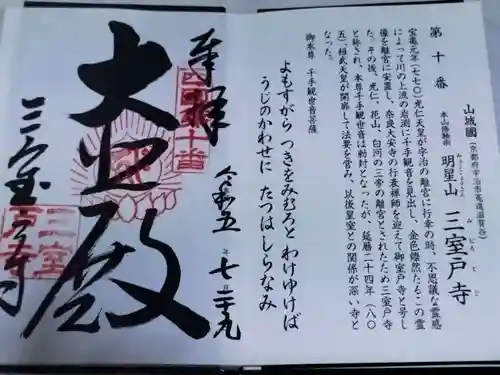 第十番
山城國（京都府宇治市菟道滋賀谷）
本山修験宗 明星山 三室戸寺
みょうじょうざん みむろとじ
宝亀元年（七七〇）光仁天皇が宇治の離宮に行幸の時、不思議な霊感
によって川の上流の岩淵に千手観音を見出し、金色燦然たるこの霊
像を離宮に安置し、奈良大安寺の行表禅師を迎えて御室戸寺と号し
た。その後、光仁、花山、白河の三帝の離宮とされたため三室戸寺
と称され、本尊千手観世音は秘封となったが、延暦二十四年（八〇
五）、桓武天皇が開廊して法要を営み、以後皇室との関係が深い寺と
なった。
御本尊 千手観世音菩薩
よもすがら つきをみむろと わけゆけば
うじのかわせに たつはしらなみ
奉拝
西国十番
令和五年七月二十九
大悲殿
三室戸寺